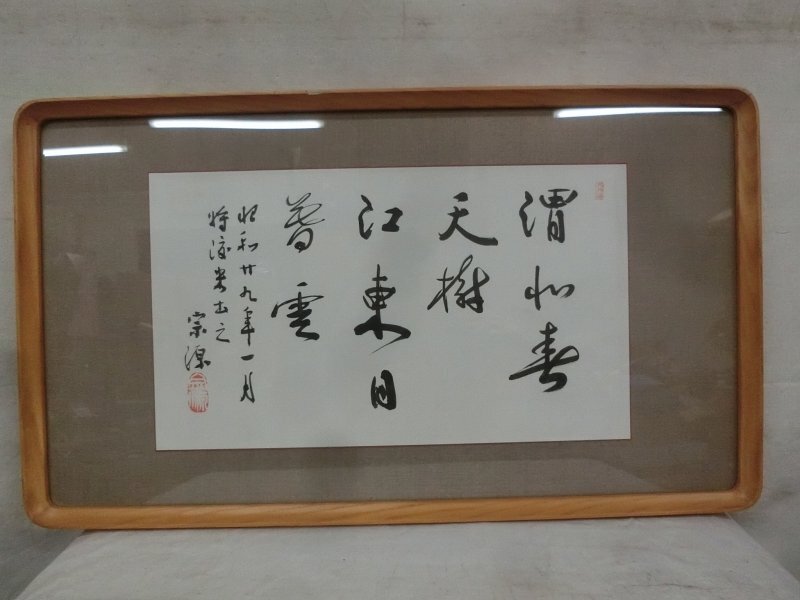 渭北春
天樹
江東日
暮雲
昭和廿九年一月
将渡米書之
宗源